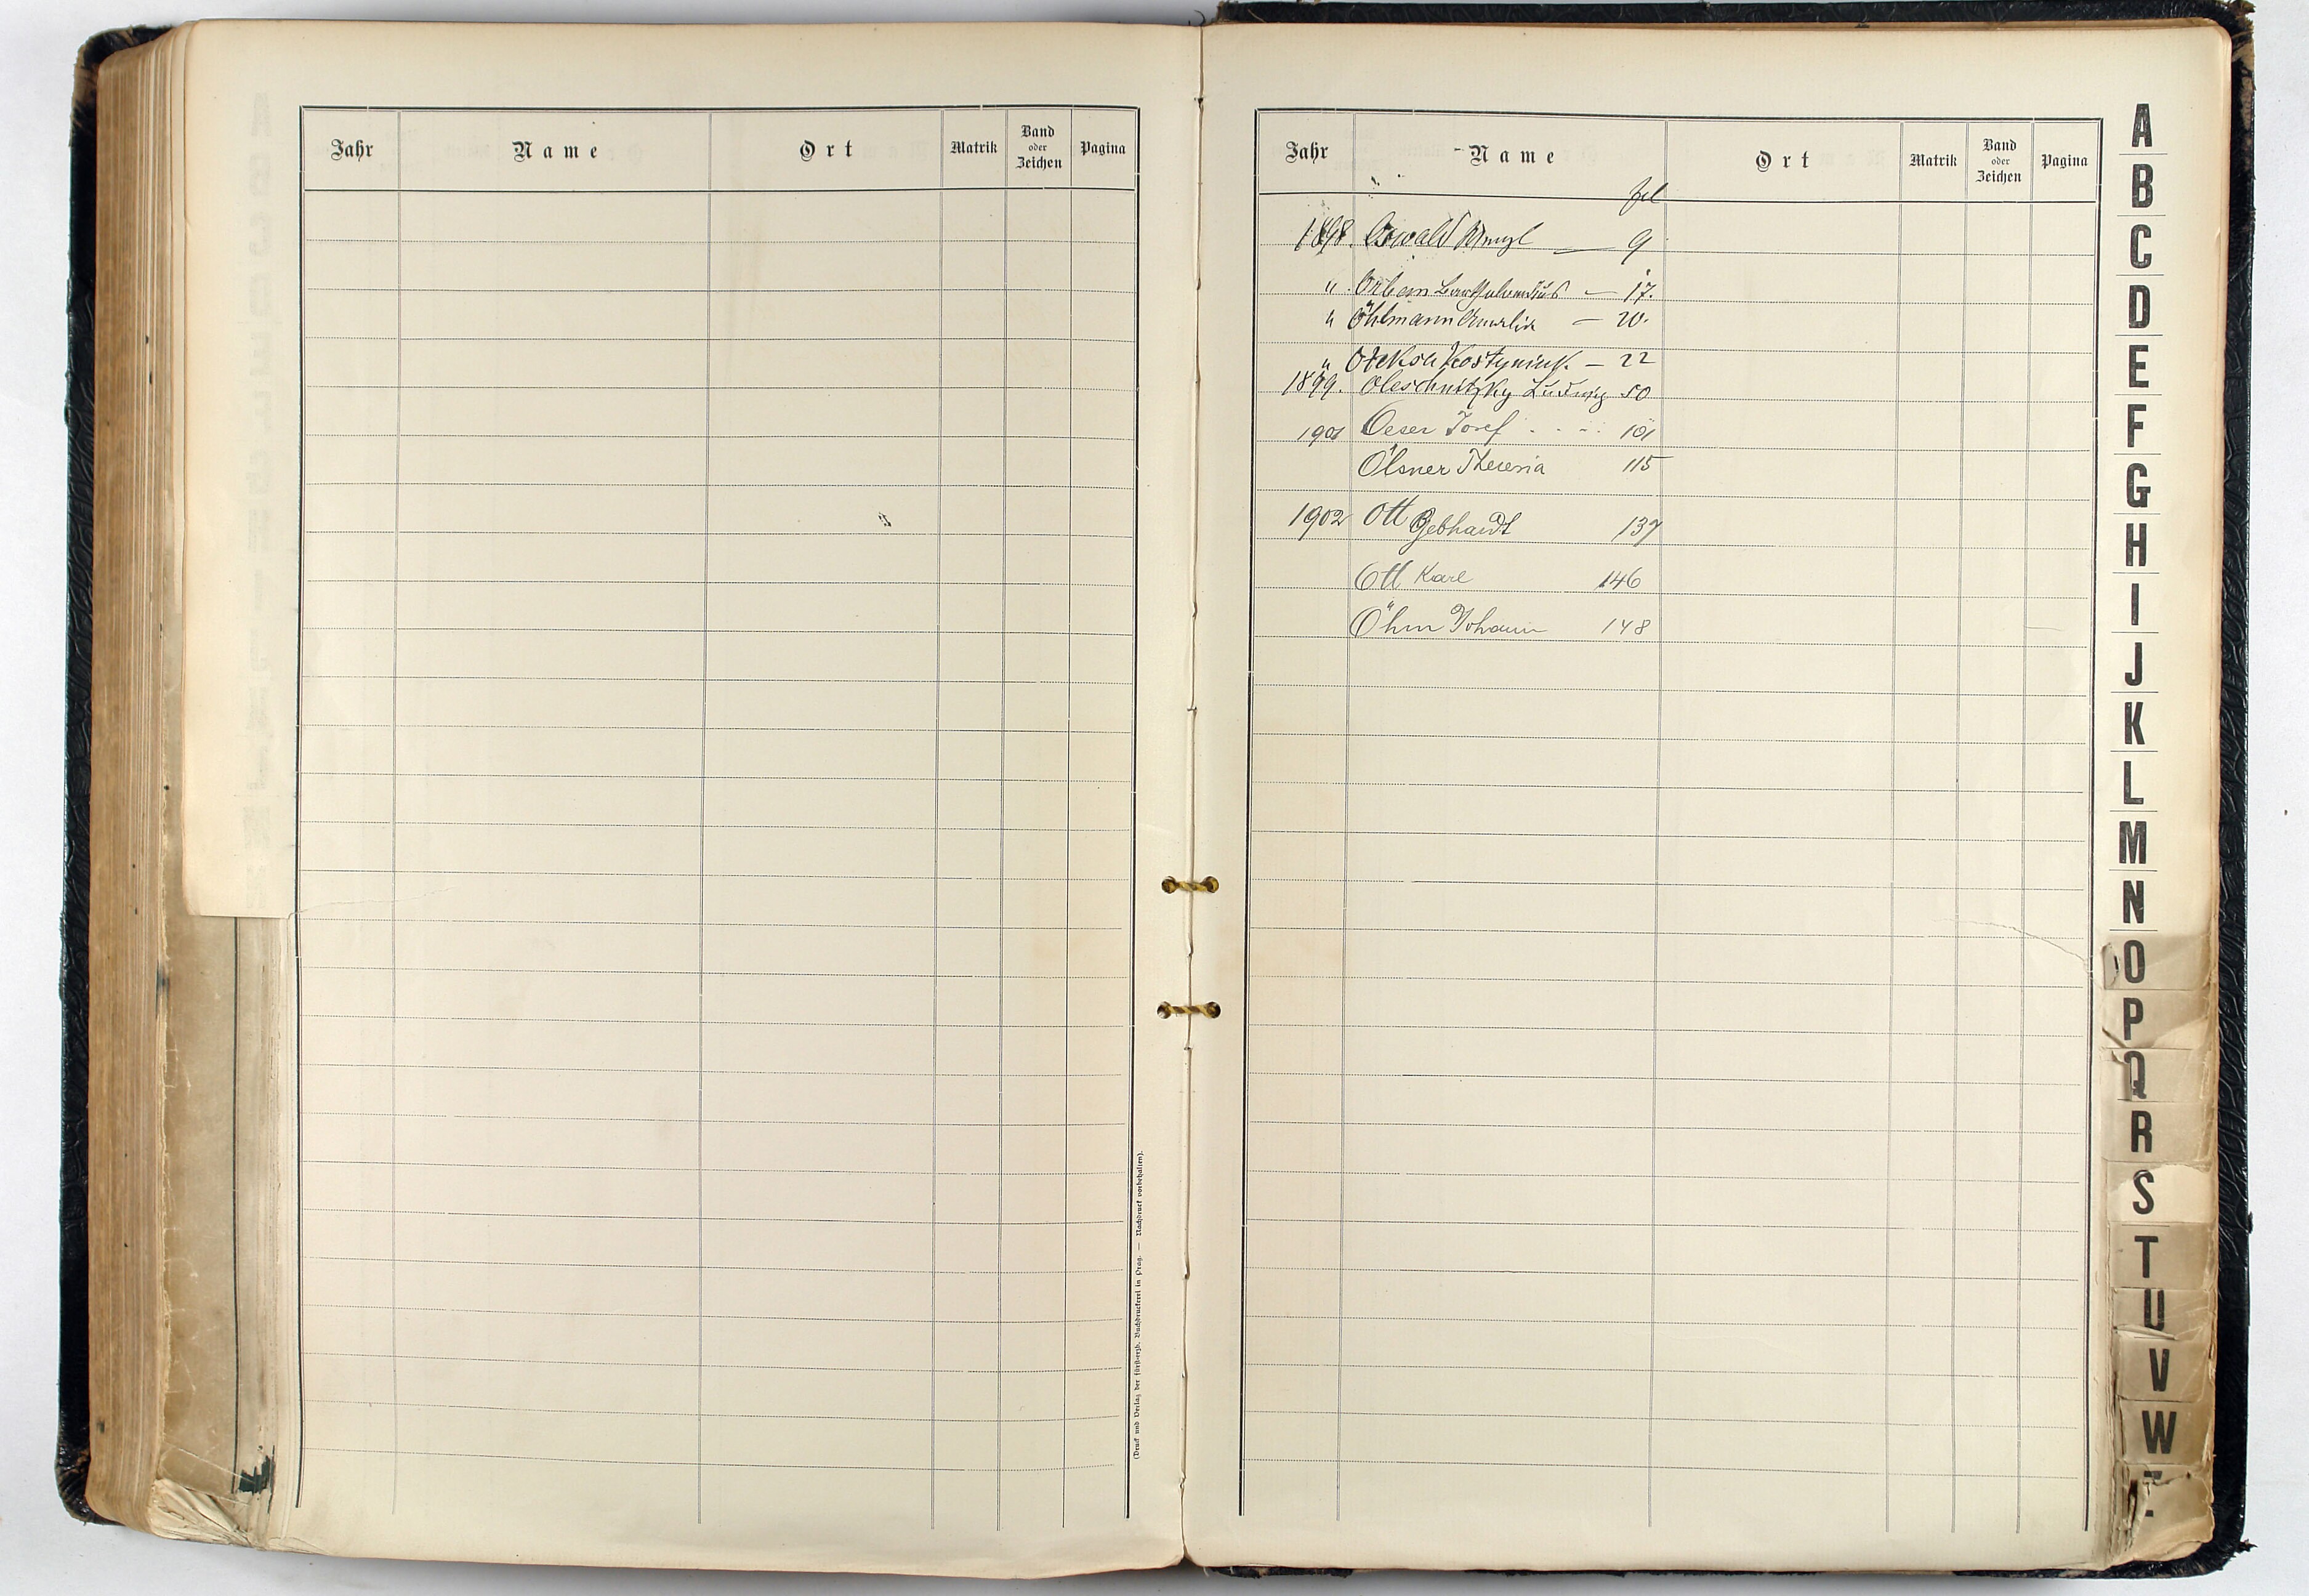 Jahr Name Ort Matrik Band oder Zeichen Pagina
(Druck und Verlag der fürsterzb. Buchdruckerei in Prag. — Nachdruck vorbehalten).
Jahr Name Ort Matrik Band oder Zeichen Pagina
fol
1898. Oswald — 9
" Orben — 17.
" Öhlmann Amalia — 20.
" Kostyniuk. — 22
1899. Oleschnitzky Ludwig 50
1901 Oeser Josef . . . . 101
Ölsner Theresia 115
1902 Ott Gebhardt 137
Ott Karl 146
Öhm Johann 148
A
B
C
D
E
F
G
H
I
J
K
L
M
N
O
P
Q
R
S
T
U
V
W